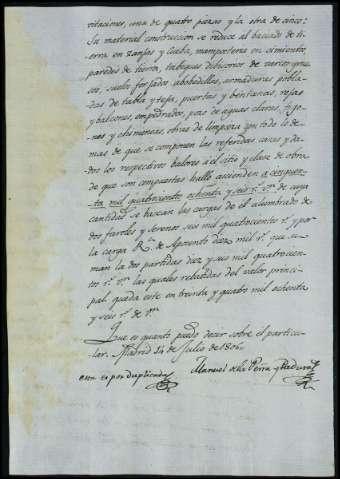 vitaciones, una de quatro piezas y la otra de cinco:
Su material construccion se reduce al baciado de ti-
erra en zanjas y Cueba, mamposteria en cimiento,
paredes de tierra, tabiques divisorios de varios grue-
sos, suelos forjados abobedillas, armaduras pobla-
das de tabla y teja, puertas y bentanas, rejas
y balcones, empedrados, pozo de aguas claras, fogo-
nes y chimeneas, obras de limpieza y todo lo de-
mas de que se componen las referidas casas y da-
dos los respectivos balores á el sitio y clase de obra
de que son compuestas hallo ascienden a cinquen-
ta mil quatrocientos ochenta y seis r.s v.n de cuya
cantidad se baxan las cargas de el alumbrado de
dos faroles y serenos seis mil quatrocientos r.s y por
la carga R.l de Aposento diez mil r.s que su-
man la dos partidas diez y seis mil quatrocien-
tos r.s v.n las quales rebaxadas del valor princi-
pal queda este en treinta y quatro mil ochenta
y seis r.s de v.n
Que es quanto puedo decir sobre el particu-
lar. Madrid 24 de Julio de 1806
esta es por duplicada
Manuel de la Peña y Padura